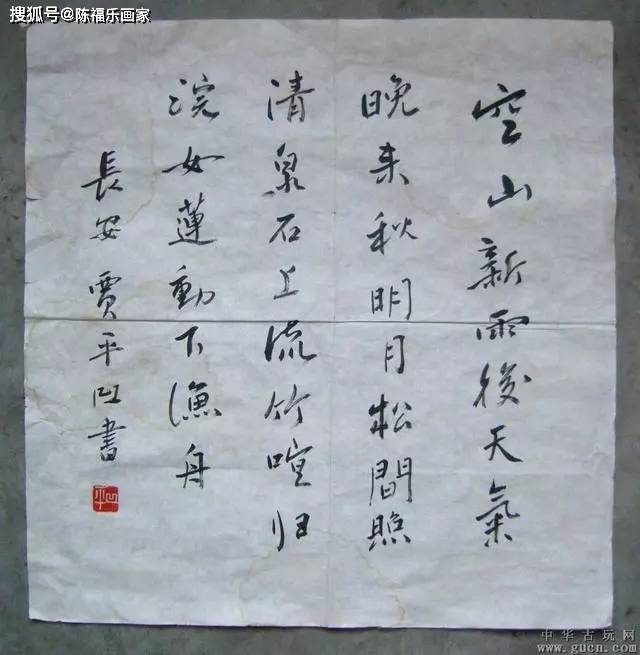 搜狐号@陈福乐画家
空山新雨後天氣
晚来秋明月松間照
清泉石上流竹喧归
浣女蓮動下漁舟
長安賈平凹書
平凹
中华古玩网
www.gucn.com